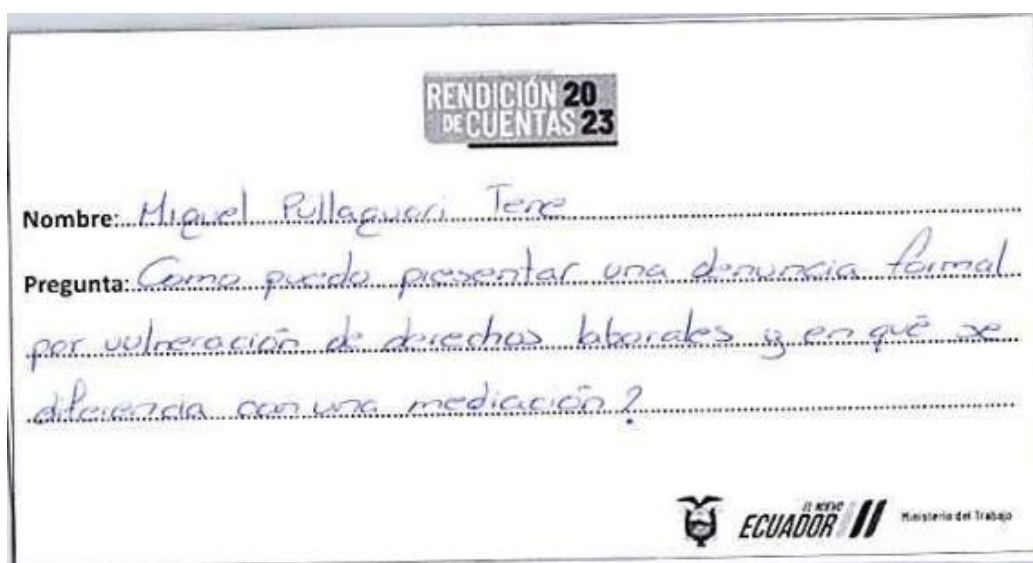 RENDICIÓN 20
DE CUENTAS 23
Nombre: Miguel Pullaguari Tene
Pregunta: Como puedo presentar una denuncia formal
por vulneración de derechos laborales y en qué se
diferencia con una mediación?
EL NUEVO
ECUADOR
Ministerio del Trabajo